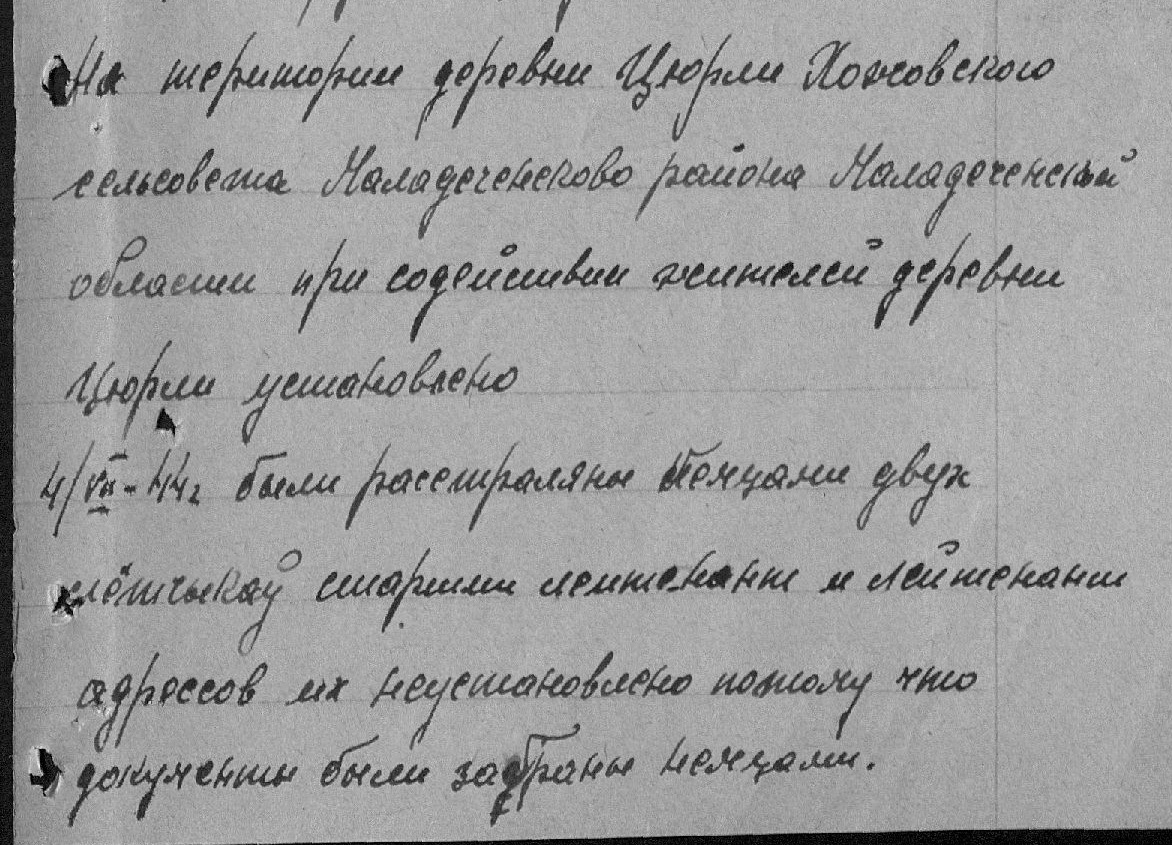 На територии деревни Цюрли Хожовского
сельсовета Маладеченсково района Маладеченской
области при содействии жителей деревни
Цюрли установлено
4/VII-44г были расстраляны немцами двух
лётчыкаў старшии леитенант и лейтенант
адрессов их неустановлено потому что
документы были забраны немцами.